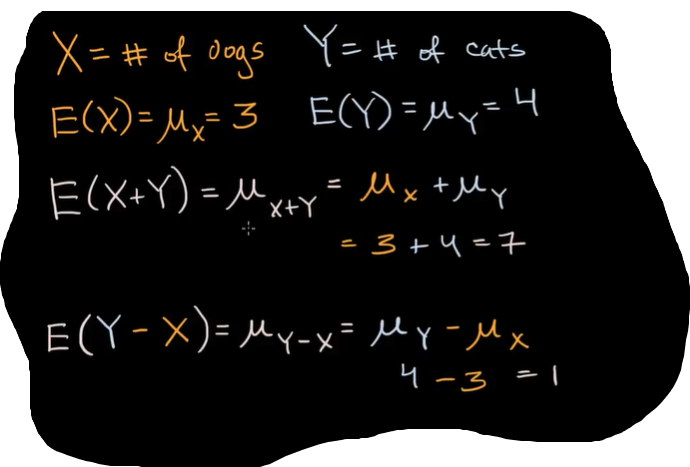 X = # of dogs Y = # of cats
E(X) = μ_X = 3 E(Y) = μ_Y = 4
E(X+Y) = μ_X+Y = μ_X + μ_Y
= 3 + 4 = 7
E(Y - X) = μ_Y-X = μ_Y - μ_X
4 - 3 = 1